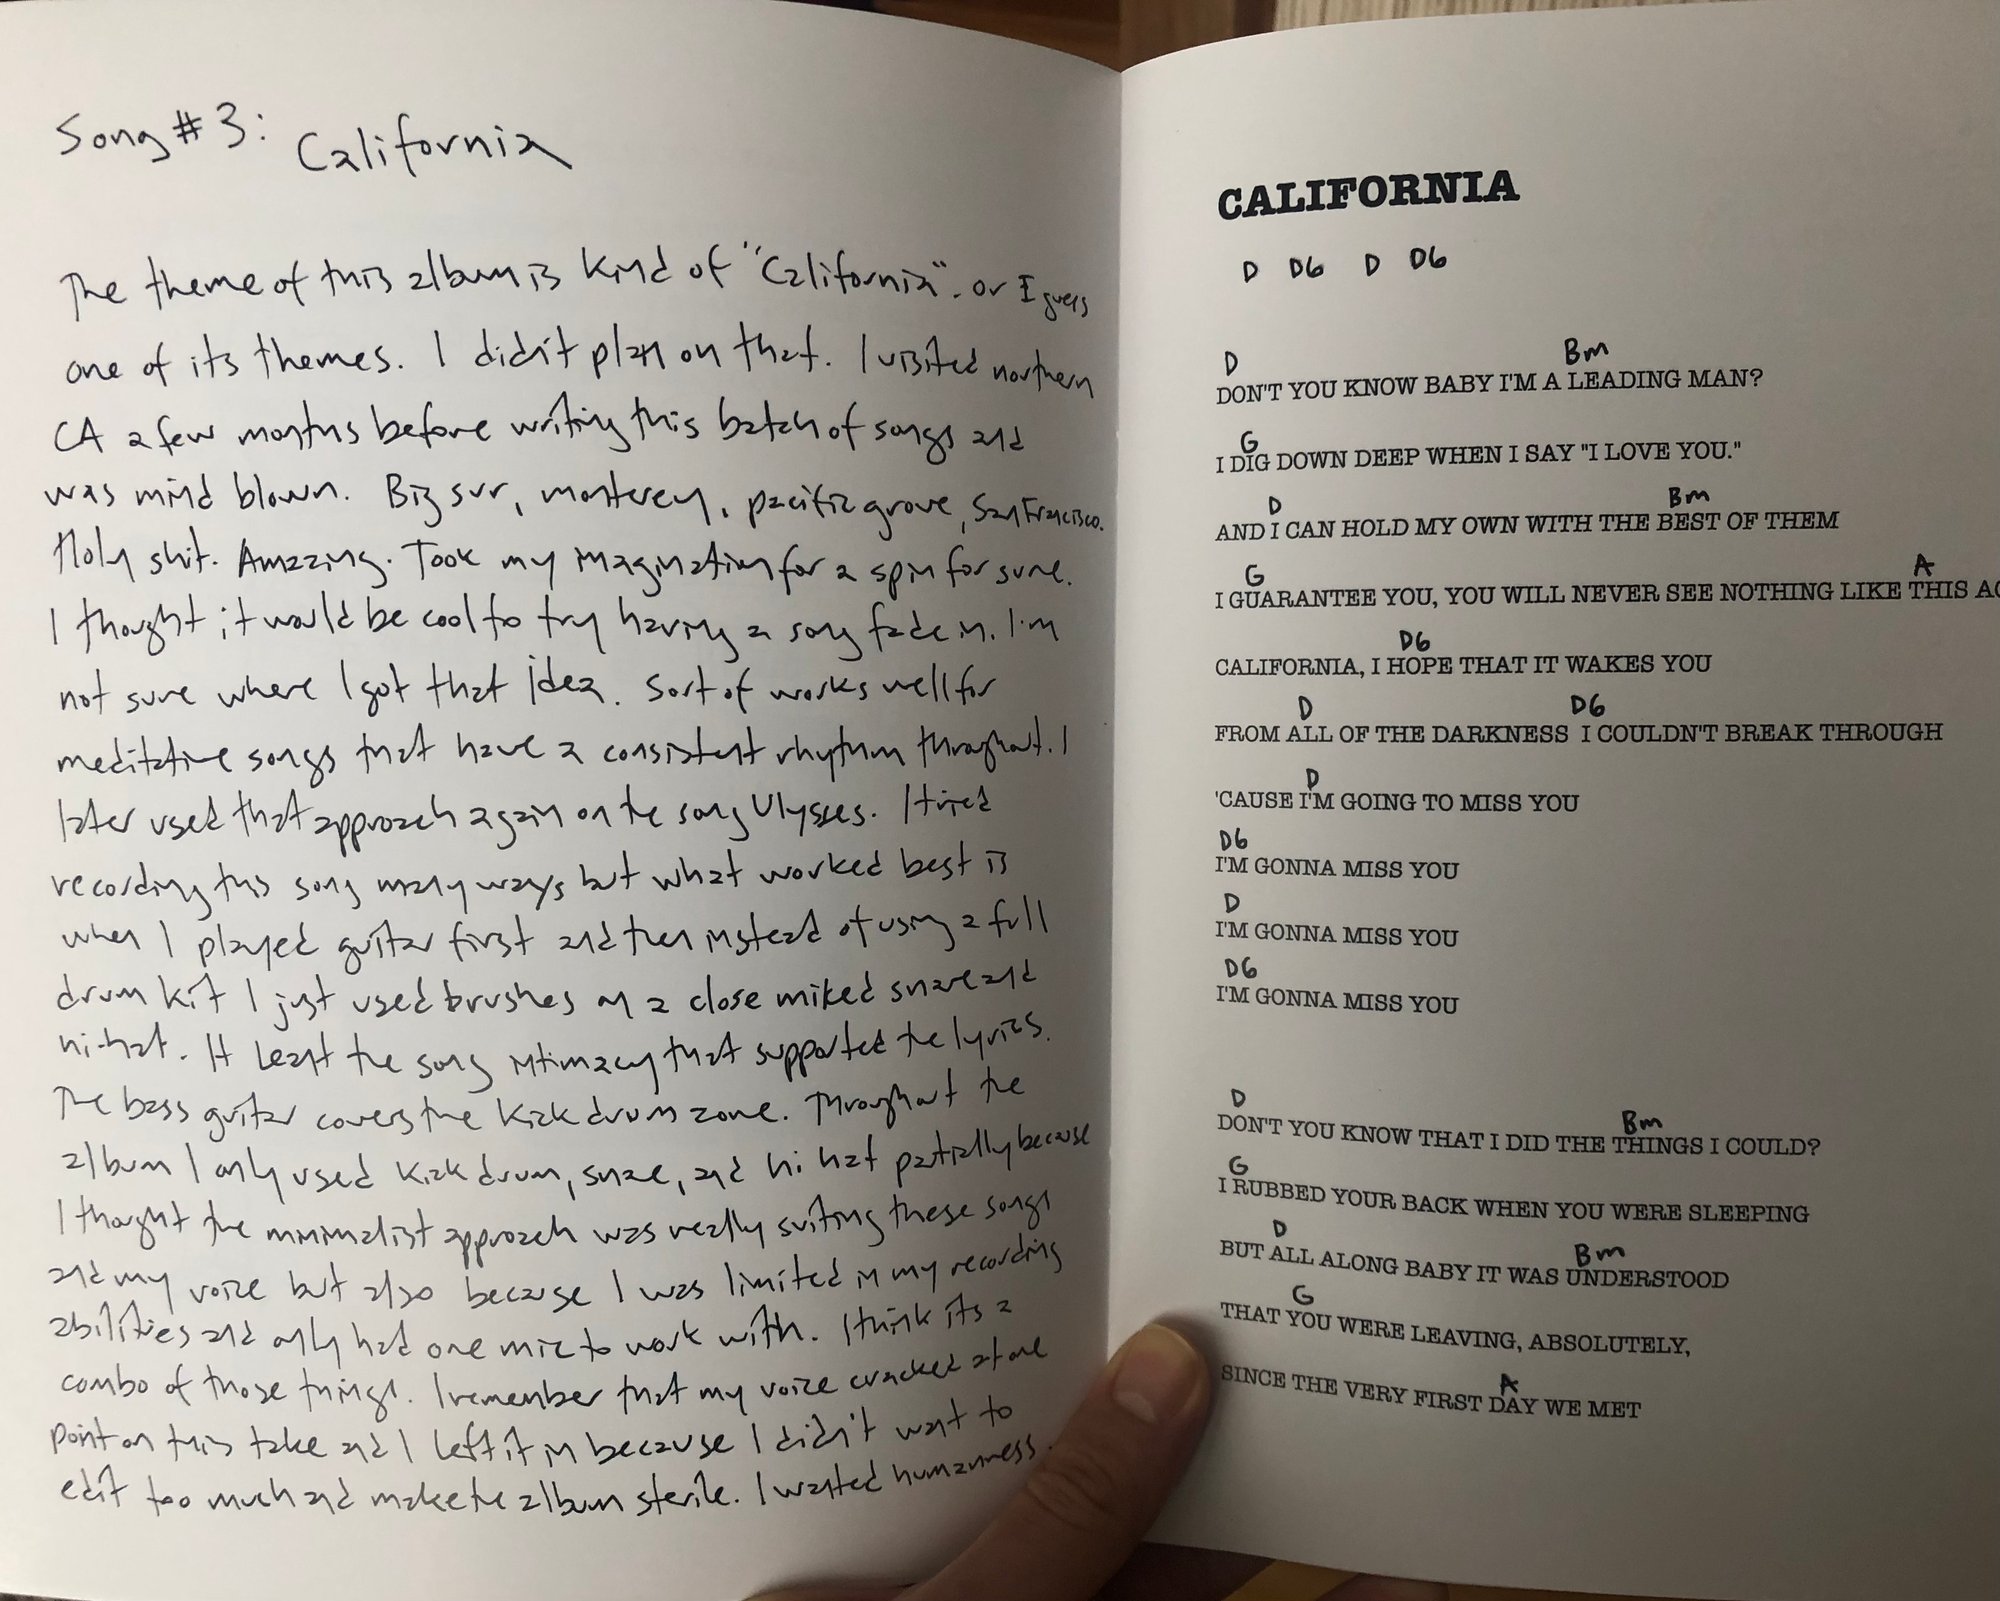 Song #3: California
The theme of this album is kind of "California". or I guess
one of its themes. I didn't plan on that. I visited northern
CA a few months before writing this batch of songs and
was mind blown. Big sur, monterey, pacific grove, San Francisco.
Holy shit. Amazing. Took my imagination for a spin for sure.
I thought it would be cool to try having a song fade in. I'm
not sure where I got that idea. Sort of works well for
meditative songs that have a consistent rhythm throughout. I
later used that approach again on the song Ulysses. I tried
recording this song many ways but what worked best is
when I played guitar first and then instead of using a full
drum kit I just used brushes on a close miked snare and
hi-hat. It the song intimacy that supported the lyrics.
The bass guitar covers the kick drum zone. Throughout the
album I only used kick drum, snare, and hi hat partially because
I thought the minimalist approach was really suiting these songs
and my voice but also because I was limited in my recording
abilities and only had one mic to work with. I think its a
combo of those things. I remember that my voice cracked at one
point on this take and I left it in because I didn't want to
edit too much and make the album sterile. I wanted humanness.
CALIFORNIA
D D6 D D6
D Bm
DON'T YOU KNOW BABY I'M A LEADING MAN?
G
I DIG DOWN DEEP WHEN I SAY "I LOVE YOU."
D Bm
AND I CAN HOLD MY OWN WITH THE BEST OF THEM
G A
I GUARANTEE YOU, YOU WILL NEVER SEE NOTHING LIKE THIS
D6
CALIFORNIA, I HOPE THAT IT WAKES YOU
D D6
FROM ALL OF THE DARKNESS I COULDN'T BREAK THROUGH
D
'CAUSE I'M GOING TO MISS YOU
D6
I'M GONNA MISS YOU
D
I'M GONNA MISS YOU
D6
I'M GONNA MISS YOU
D Bm
DON'T YOU KNOW THAT I DID THE THINGS I COULD?
G
I RUBBED YOUR BACK WHEN YOU WERE SLEEPING
D Bm
BUT ALL ALONG BABY IT WAS UNDERSTOOD
G
THAT YOU WERE LEAVING, ABSOLUTELY,
A
SINCE THE VERY FIRST DAY WE MET